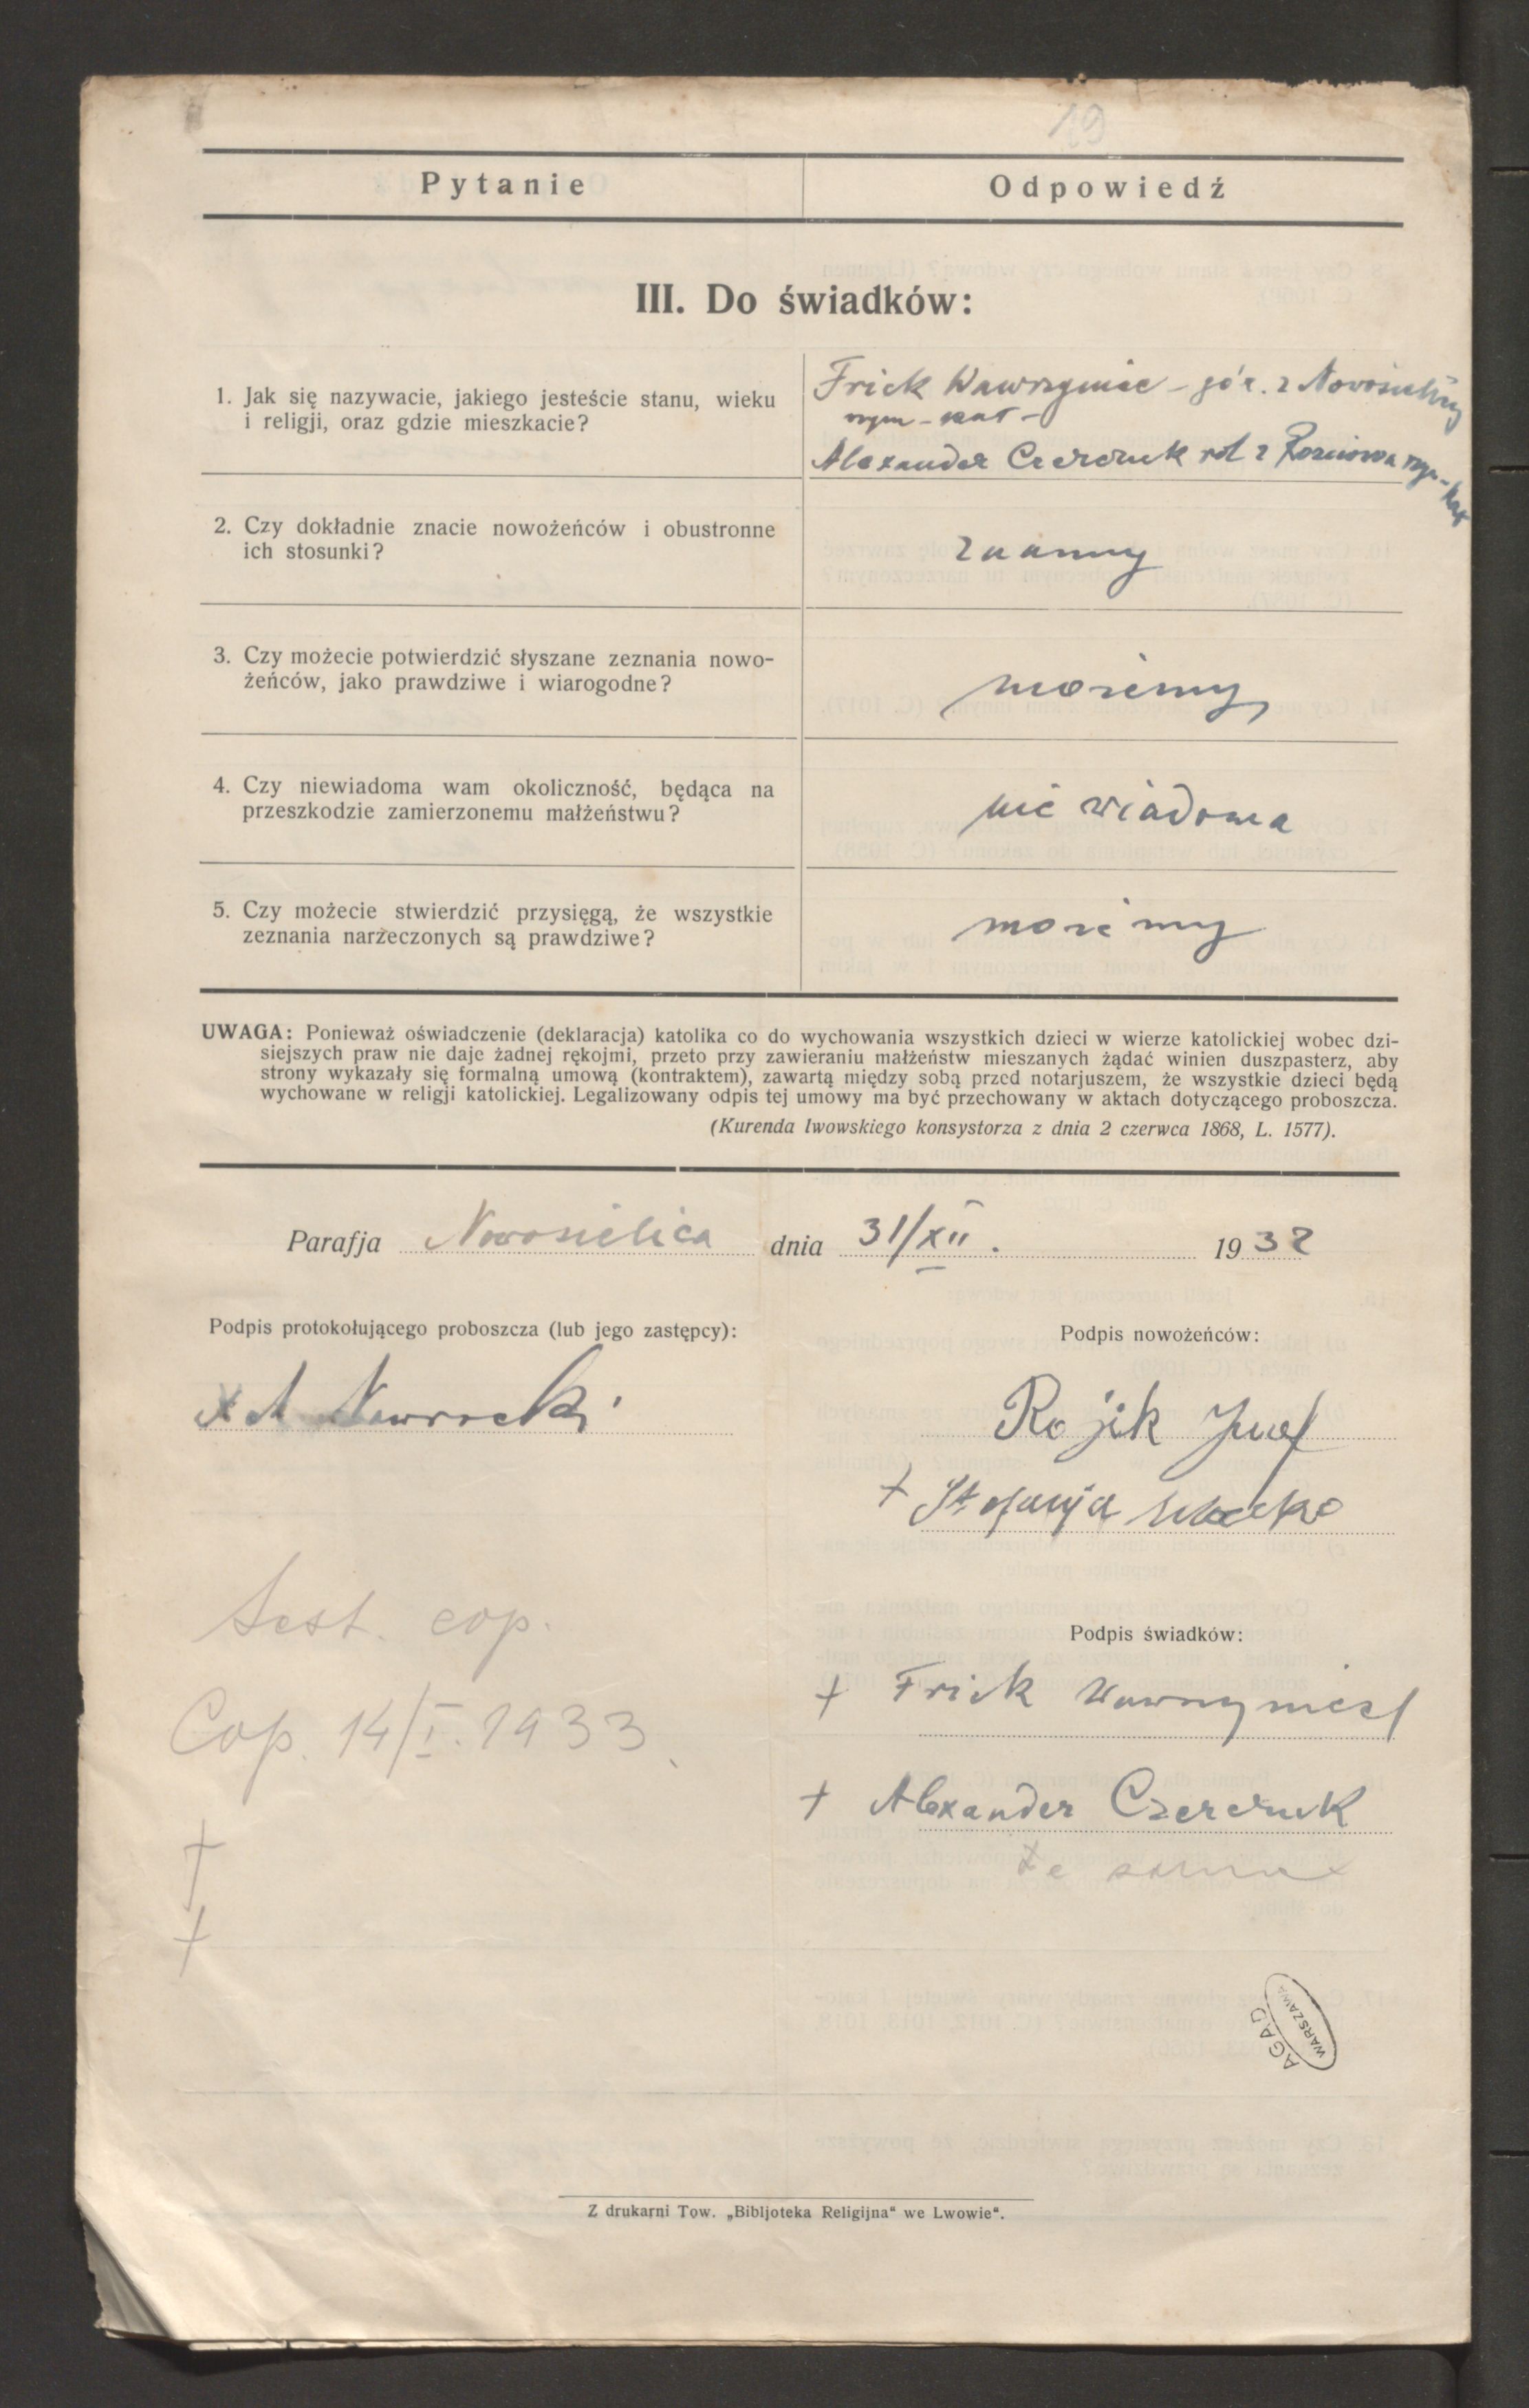 19
Pytanie
Odpowiedź
III. Do świadków:
1. Jak się nazywacie, jakiego jesteście stanu, wieku
i religji, oraz gdzie mieszkacie?
Frick Wawrzyniec - z Nowosielicy
rzym - kat -
Alexander Czerczuk rol z rzym-kat
2. Czy dokładnie znacie nowożeńców i obustronne
ich stosunki?
znamy
3. Czy możecie potwierdzić słyszane zeznania nowo-
żeńców, jako prawdziwe i wiarogodne?
możemy
4. Czy niewiadoma wam okoliczność, będąca na
przeszkodzie zamierzonemu małżeństwu?
nie wiadoma
5. Czy możecie stwierdzić przysięgą, że wszystkie
zeznania narzeczonych są prawdziwe?
możemy
UWAGA: Ponieważ oświadczenie (deklaracja) katolika co do wychowania wszystkich dzieci w wierze katolickiej wobec dzi-
siejszych praw nie daje żadnej rękojmi, przeto przy zawieraniu małżeństw mieszanych żądać winien duszpasterz, aby
strony wykazały się formalną umową (kontraktem), zawartą między sobą przed notarjuszem, że wszystkie dzieci będą
wychowane w religji katolickiej. Legalizowany odpis tej umowy ma być przechowany w aktach dotyczącego proboszcza.
(Kurenda lwowskiego konsystorza z dnia 2 czerwca 1868, L. 1577).
Parafja Nowosielica dnia 31/XII. 1932
Podpis protokołującego proboszcza (lub jego zastępcy):
Podpis nowożeńców:
X A Nawrocki
Rojik Józef
+ Stefanja
Test. cop.
Podpis świadków:
+ Frick Wawrzyniec
Cop. 14/I. 1933.
+ Alexander Czerczuk
†
†
AGAD
WARSZAWA
Z drukarni Tow. „Bibljoteka Religijna“ we Lwowie“.